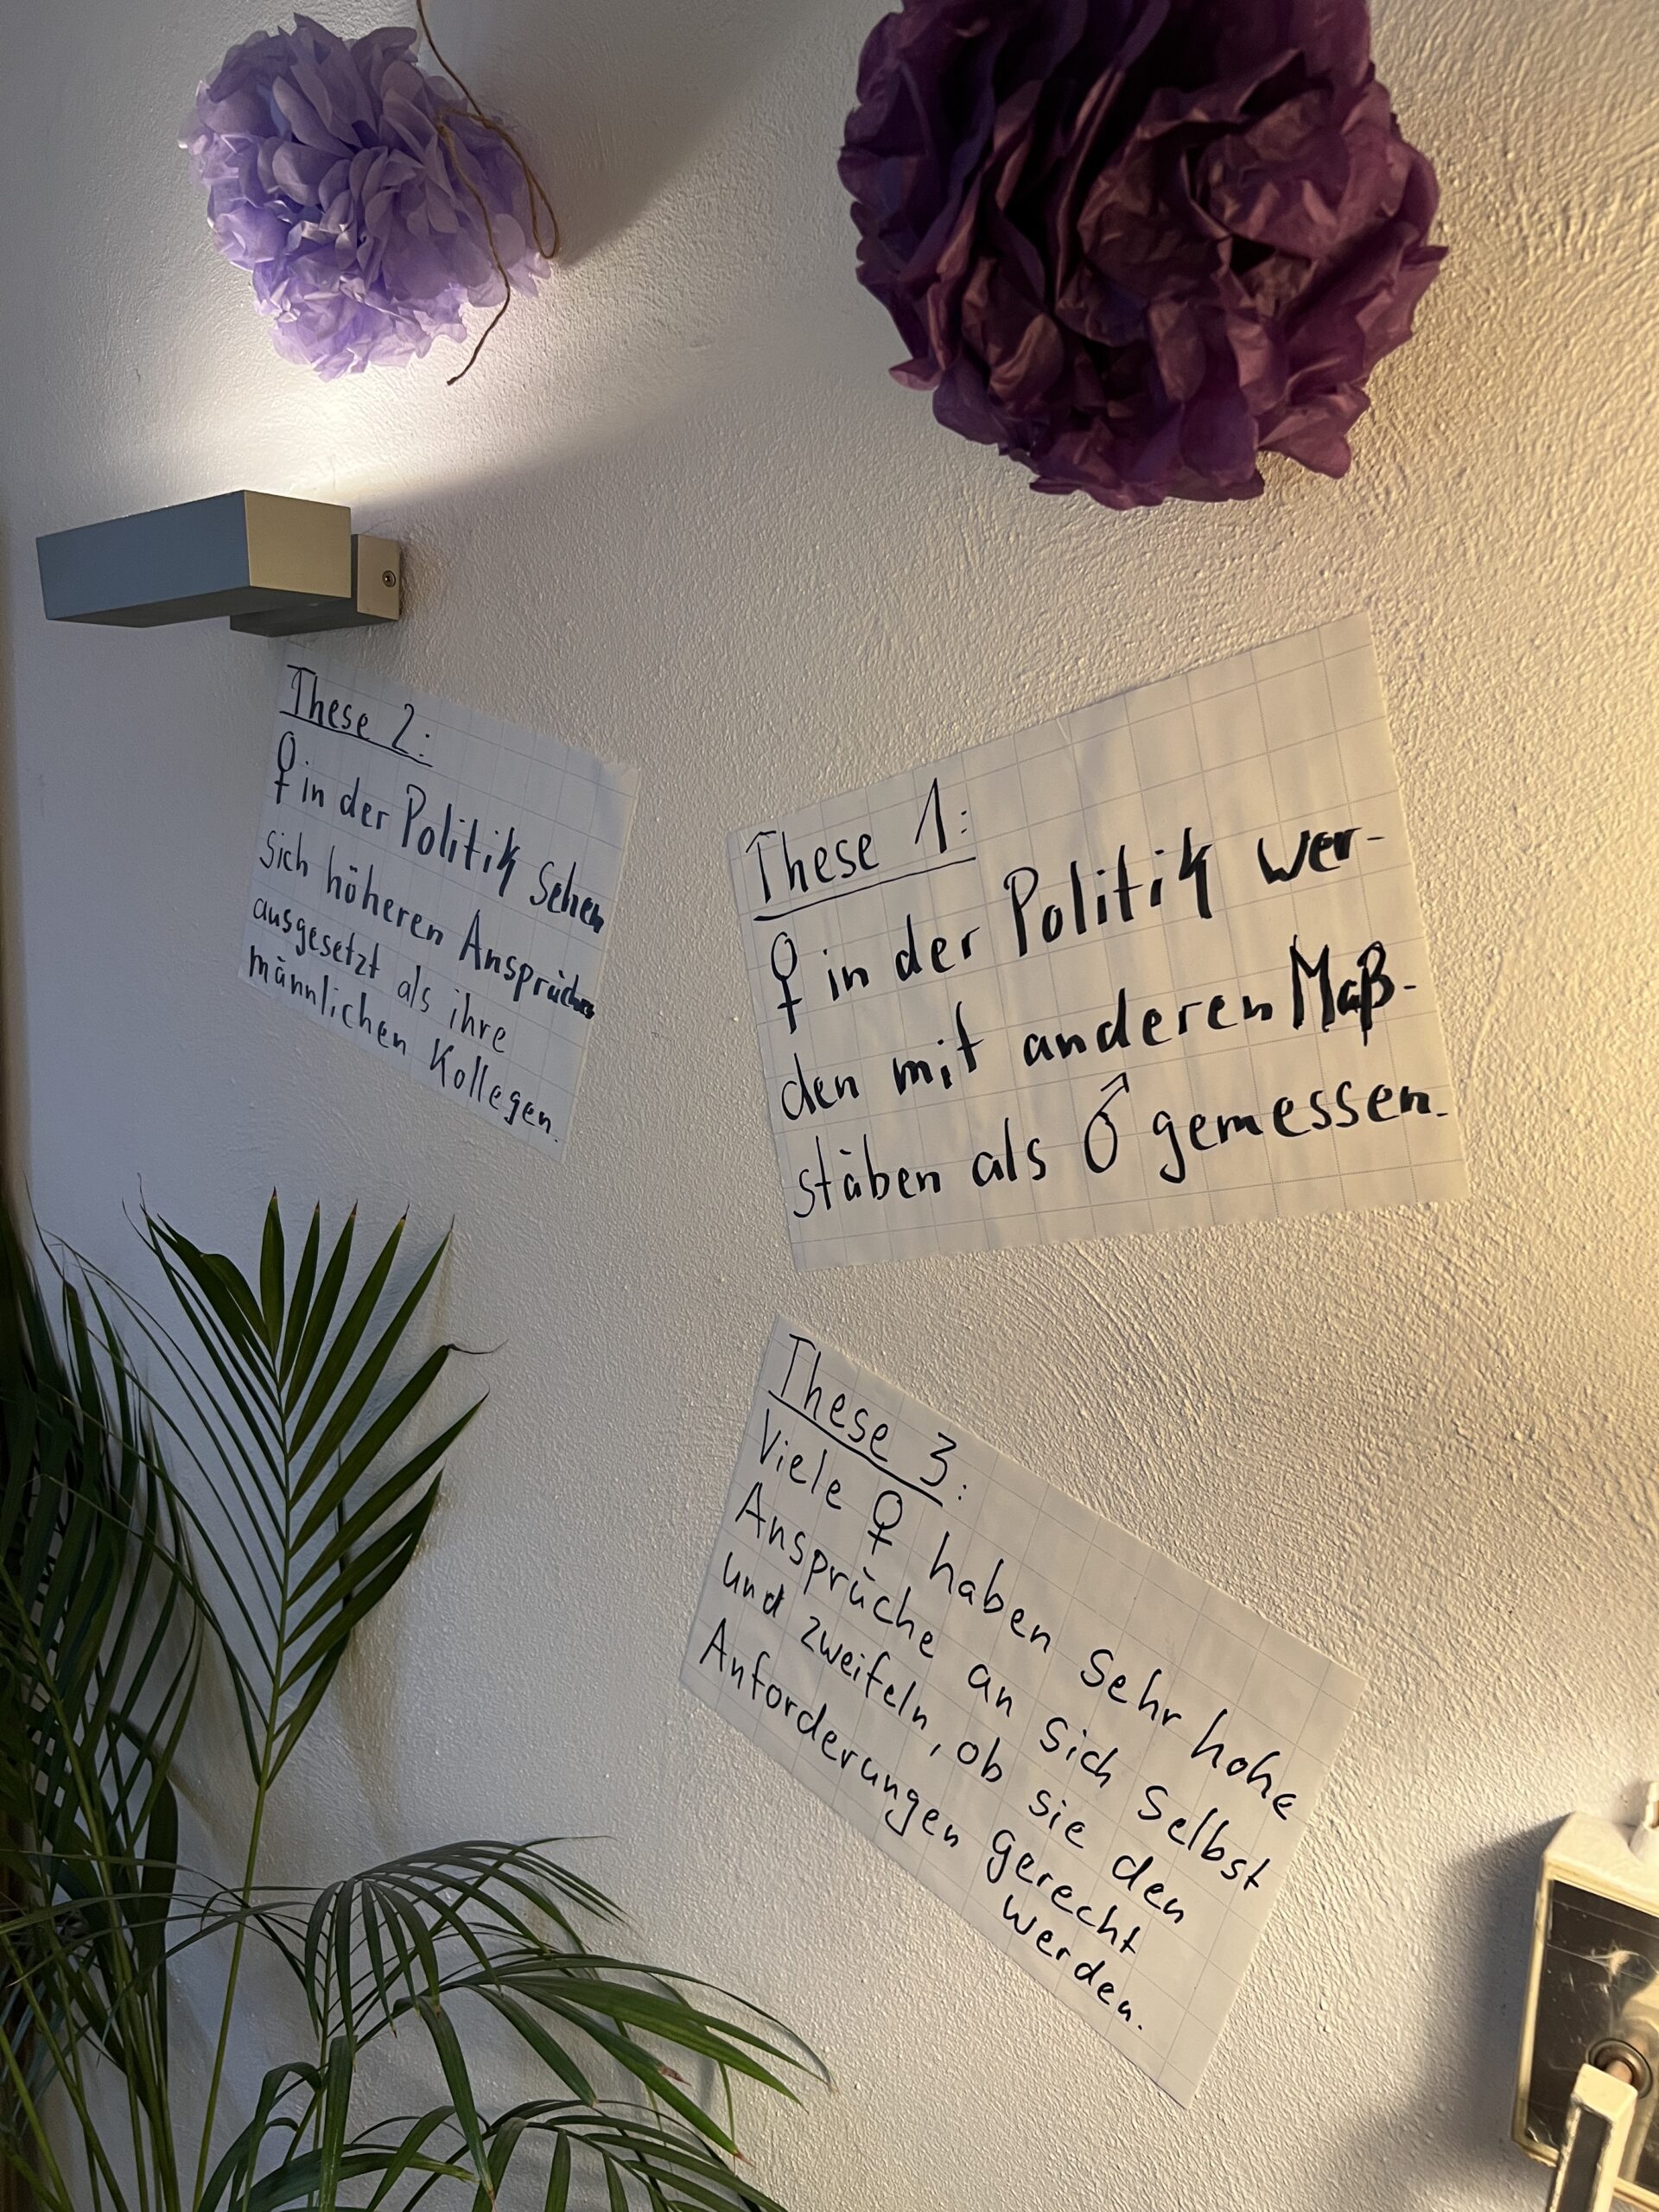 These 2:
♀ in der Politik sehen
sich höheren Ansprüchen
ausgesetzt als ihre
männlichen Kollegen.
These 1:
♀ in der Politik wer-
den mit anderen Maß-
stäben als ♂ gemessen.
These 3:
Viele ♀ haben sehr hohe
Ansprüche an sich selbst
und zweifeln, ob sie den
Anforderungen gerecht
werden.